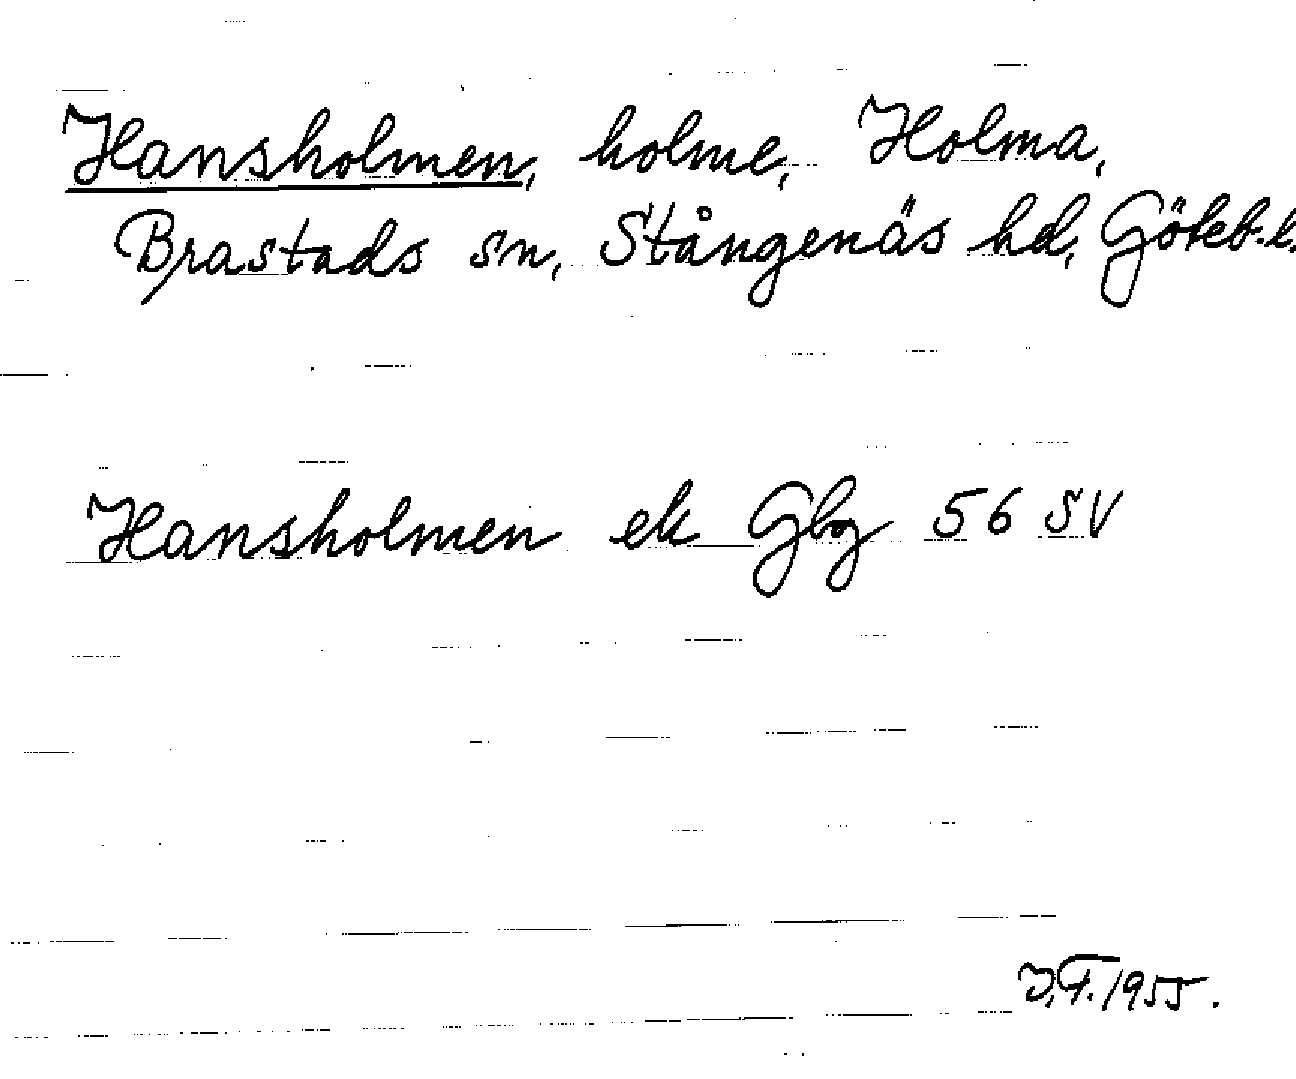 Hansholmen, holme, Holma,
Brastads sn, Stångenäs hd, Göteb. l.
Hansholmen ek Gbg 56 SV
J.F. 1955.